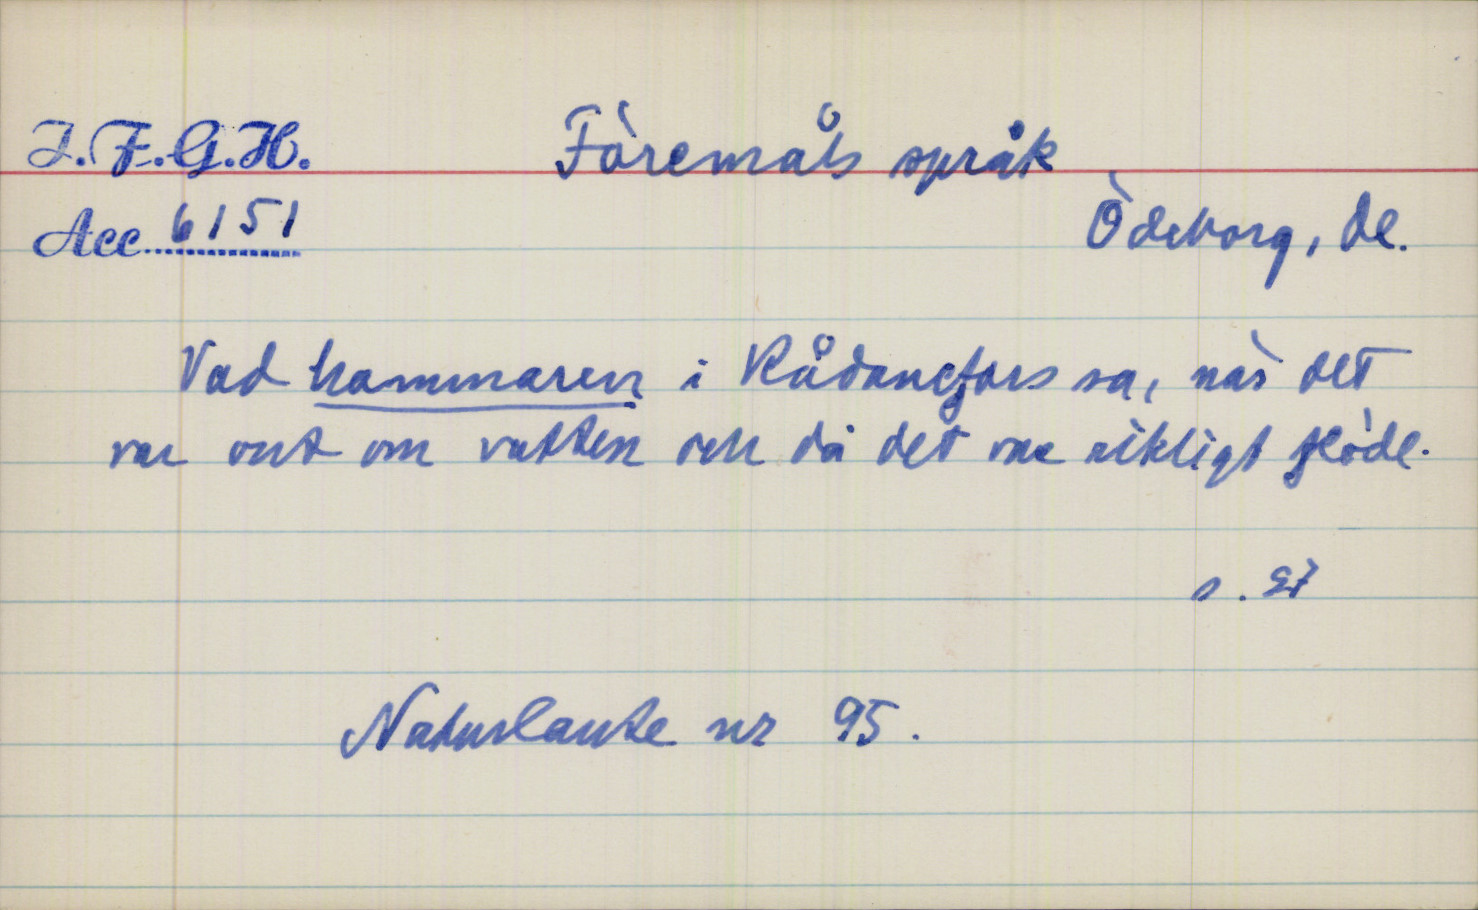 I.F.G.H.
Föremåls språk
Acc. 6151
Ödeborg, Dl.
Vad hammaren i Rådanefors sa, när det
var ont om vatten och då det var rikligt flöde.
s. 27
Naturlaute nr 95.